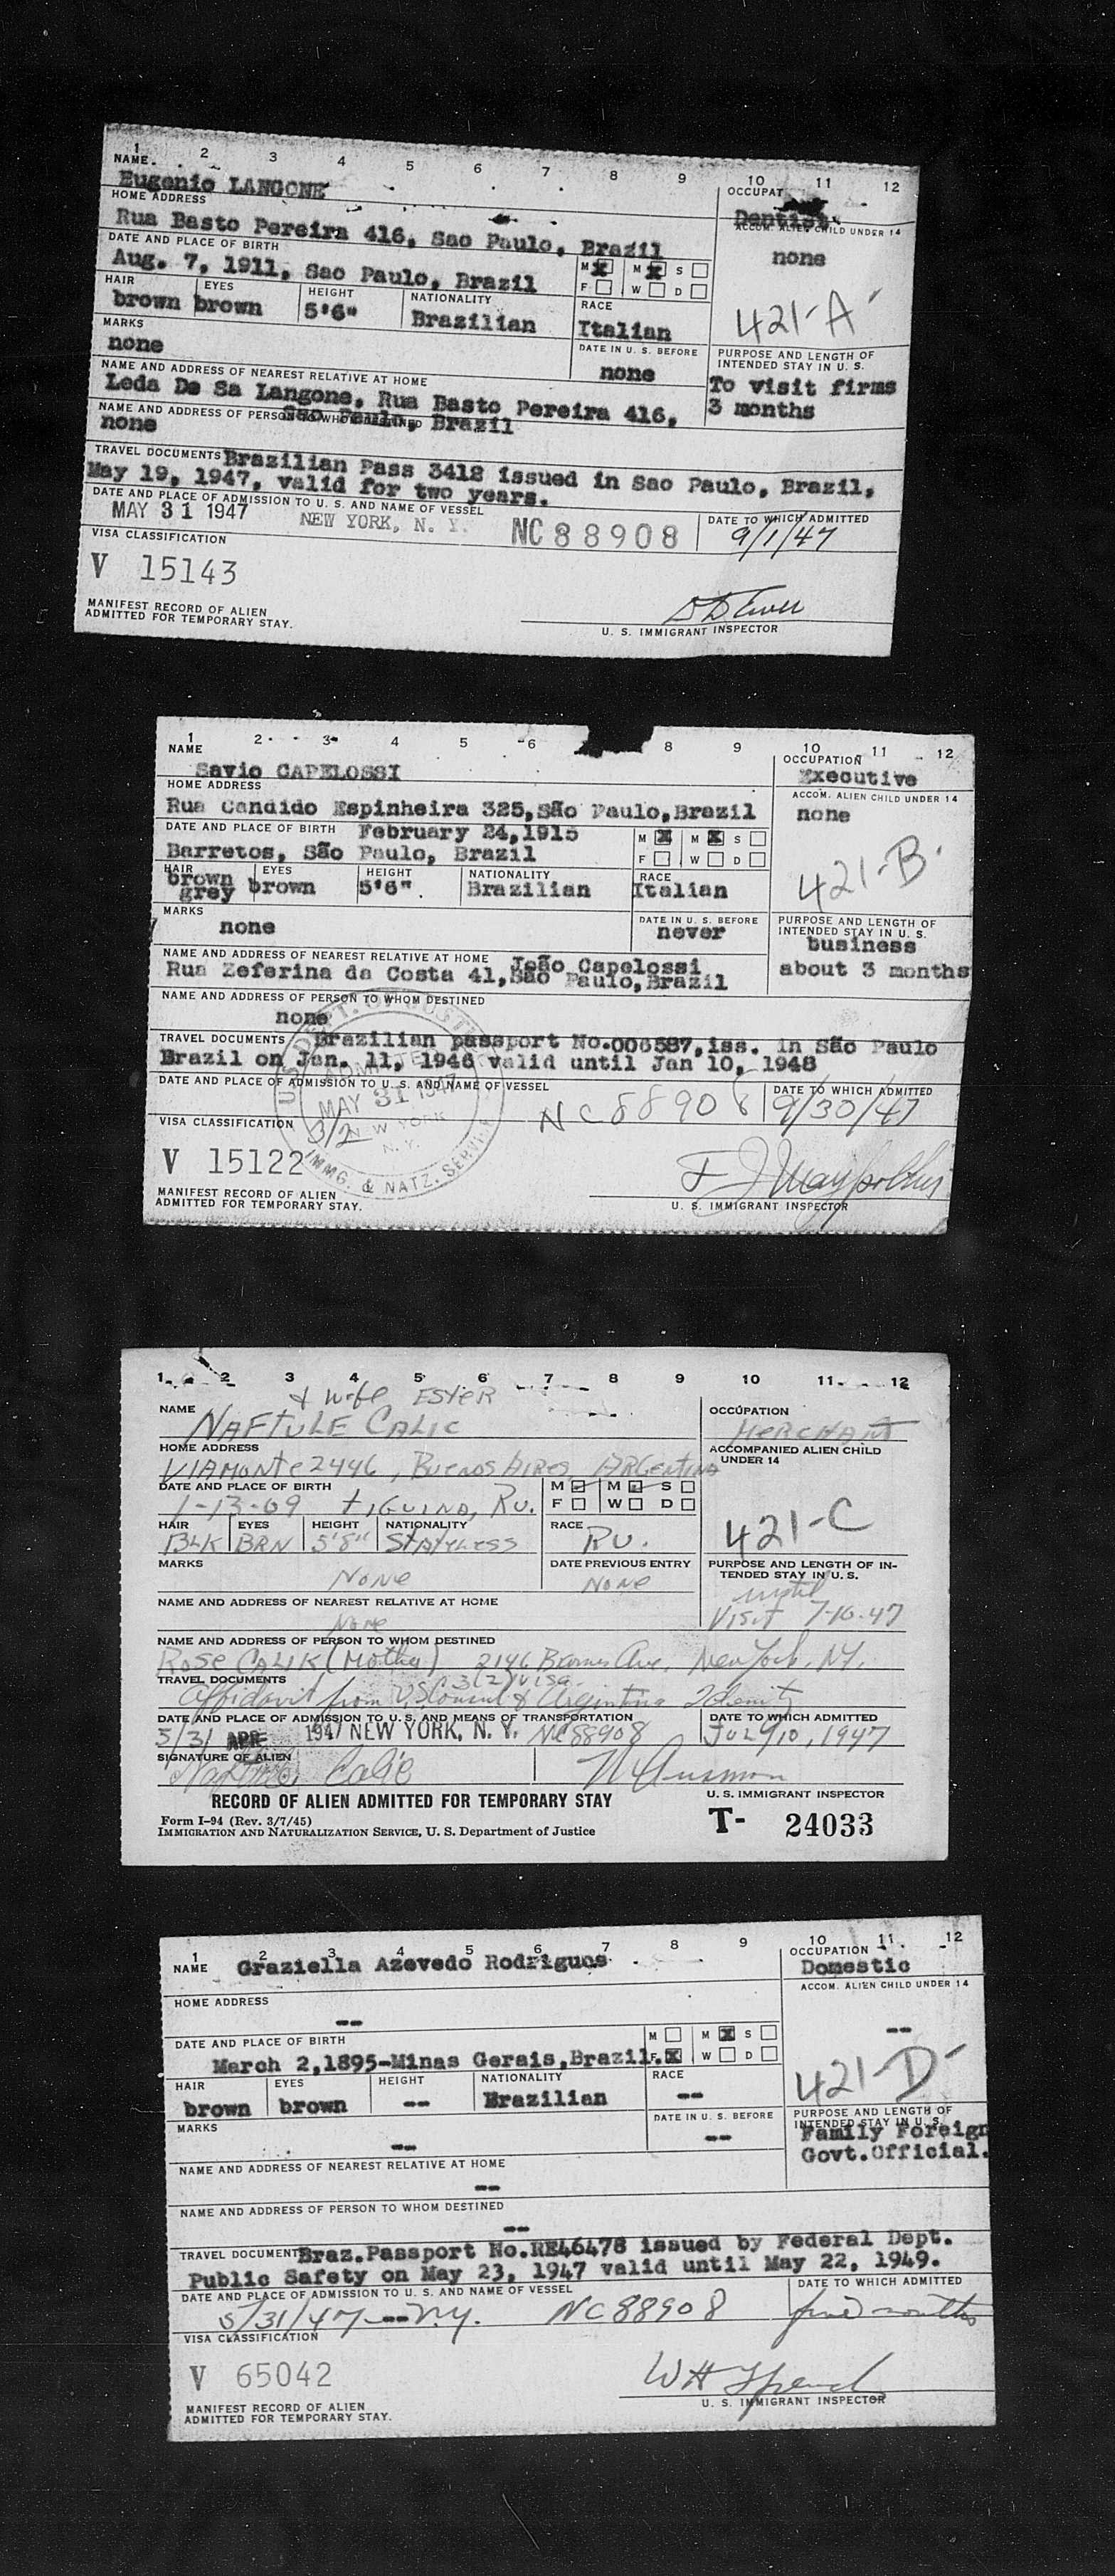 1 2 3 4 5 6 7 8 9 10 11 12
NAME.
Eugenio LANGONE
OCCUPAT
Dentist
HOME ADDRESS
Rua Basto Pereira 416, Sao Paulo, Brazil
ACCOM. ALIEN CHILD UNDER 14
none
DATE AND PLACE OF BIRTH
Aug. 7, 1911, Sao Paulo, Brazil
M X M X S
F W D
HAIR EYES HEIGHT NATIONALITY RACE
brown brown 5'6" Brazilian Italian
421-A
MARKS
none
DATE IN U. S. BEFORE
none
PURPOSE AND LENGTH OF
INTENDED STAY IN U. S.
To visit firms
3 months
NAME AND ADDRESS OF NEAREST RELATIVE AT HOME
Leda De Sa Langone, Rua Basto Pereira 416,
Sao Paulo, Brazil
NAME AND ADDRESS OF PERSON TO WHOM DESTINED
none
TRAVEL DOCUMENTS Brazilian Pass 3412 issued in Sao Paulo, Brazil,
May 19, 1947, valid for two years.
DATE AND PLACE OF ADMISSION TO U. S. AND NAME OF VESSEL
MAY 31 1947 NEW YORK, N. Y. NC 88908
DATE TO WHICH ADMITTED
9/1/47
VISA CLASSIFICATION
V 15143
MANIFEST RECORD OF ALIEN
ADMITTED FOR TEMPORARY STAY.
U. S. IMMIGRANT INSPECTOR
1 2 3 4 5 6 8 9 10 11 12
NAME
Savio CAPELOSSI
OCCUPATION
Executive
HOME ADDRESS
Rua Candido Espinheira 325, São Paulo, Brazil
ACCOM. ALIEN CHILD UNDER 14
none
DATE AND PLACE OF BIRTH February 24, 1915
Barretos, São Paulo, Brazil
M X M X S
F W D
HAIR EYES HEIGHT NATIONALITY RACE
brown grey brown 5'6". Brazilian Italian
421-B
MARKS
none
DATE IN U. S. BEFORE
never
PURPOSE AND LENGTH OF
INTENDED STAY IN U. S.
business
about 3 months
NAME AND ADDRESS OF NEAREST RELATIVE AT HOME João Capelossi
Rua Zeferina da Costa 41, São Paulo, Brazil
NAME AND ADDRESS OF PERSON TO WHOM DESTINED
none
TRAVEL DOCUMENTS Brazilian passport No. 006587, iss. in São Paulo
Brazil on Jan. 11, 1946 valid until Jan 10, 1948
DATE AND PLACE OF ADMISSION TO U. S. AND NAME OF VESSEL
ADMITTED
MAY 31 1947
NEW YORK
N. Y.
IMMG. & NATZ. SERVICE
NC 88908
DATE TO WHICH ADMITTED
9/30/47
VISA CLASSIFICATION 3/2
V 15122
MANIFEST RECORD OF ALIEN
ADMITTED FOR TEMPORARY STAY.
U. S. IMMIGRANT INSPECTOR
1 2 3 4 5 6 7 8 9 10 11 12
& wife ESTER
NAME
NAFTULE CALIC
OCCUPATION
MERCHANT
HOME ADDRESS
VIAMONTE 2446, BUENOS AIRES, ARGENTINA
ACCOMPANIED ALIEN CHILD
UNDER 14
DATE AND PLACE OF BIRTH
1-13-09 TIGUINA, RU.
M M S
F W D
HAIR EYES HEIGHT NATIONALITY RACE
BLK BRN 5'8" STATELESS RU.
421-C
MARKS
NONE
DATE PREVIOUS ENTRY
NONE
PURPOSE AND LENGTH OF IN-
TENDED STAY IN U. S.
until
Visit 7-10-47
NAME AND ADDRESS OF NEAREST RELATIVE AT HOME
None
NAME AND ADDRESS OF PERSON TO WHOM DESTINED
ROSE CALIK (Mother) 2146 Barnes Ave. New York, N.Y.
TRAVEL DOCUMENTS 3(2) visa
Affidavit from U.S. Consul & Argentina Identity
DATE AND PLACE OF ADMISSION TO U. S. AND MEANS OF TRANSPORTATION
5/31 APR 1947 NEW YORK, N. Y. NC 88908
DATE TO WHICH ADMITTED
JULY 10, 1947
SIGNATURE OF ALIEN
Naftule Calic
RECORD OF ALIEN ADMITTED FOR TEMPORARY STAY
U. S. IMMIGRANT INSPECTOR
Form I-94 (Rev. 3/7/45)
IMMIGRATION AND NATURALIZATION SERVICE, U. S. Department of Justice
T- 24033
1 2 3 4 5 6 7 8 9 10 11 12
NAME Graziella Azevedo Rodrigues
OCCUPATION
Domestic
HOME ADDRESS
--
ACCOM. ALIEN CHILD UNDER 14
--
DATE AND PLACE OF BIRTH
March 2, 1895-Minas Gerais, Brazil.
M M X S
F X W D
HAIR EYES HEIGHT NATIONALITY RACE
brown brown -- Brazilian --
421-D
MARKS
--
DATE IN U. S. BEFORE
--
PURPOSE AND LENGTH OF
INTENDED STAY IN U. S.
Family Foreign
Govt. Official.
NAME AND ADDRESS OF NEAREST RELATIVE AT HOME
--
NAME AND ADDRESS OF PERSON TO WHOM DESTINED
--
TRAVEL DOCUMENT Braz. Passport No. RE46478 issued by Federal Dept.
Public Safety on May 23, 1947 valid until May 22, 1949.
DATE AND PLACE OF ADMISSION TO U. S. AND NAME OF VESSEL
5/31/47 -- N.Y. NC 88908
DATE TO WHICH ADMITTED
months
VISA CLASSIFICATION
V 65042
MANIFEST RECORD OF ALIEN
ADMITTED FOR TEMPORARY STAY.
U. S. IMMIGRANT INSPECTOR